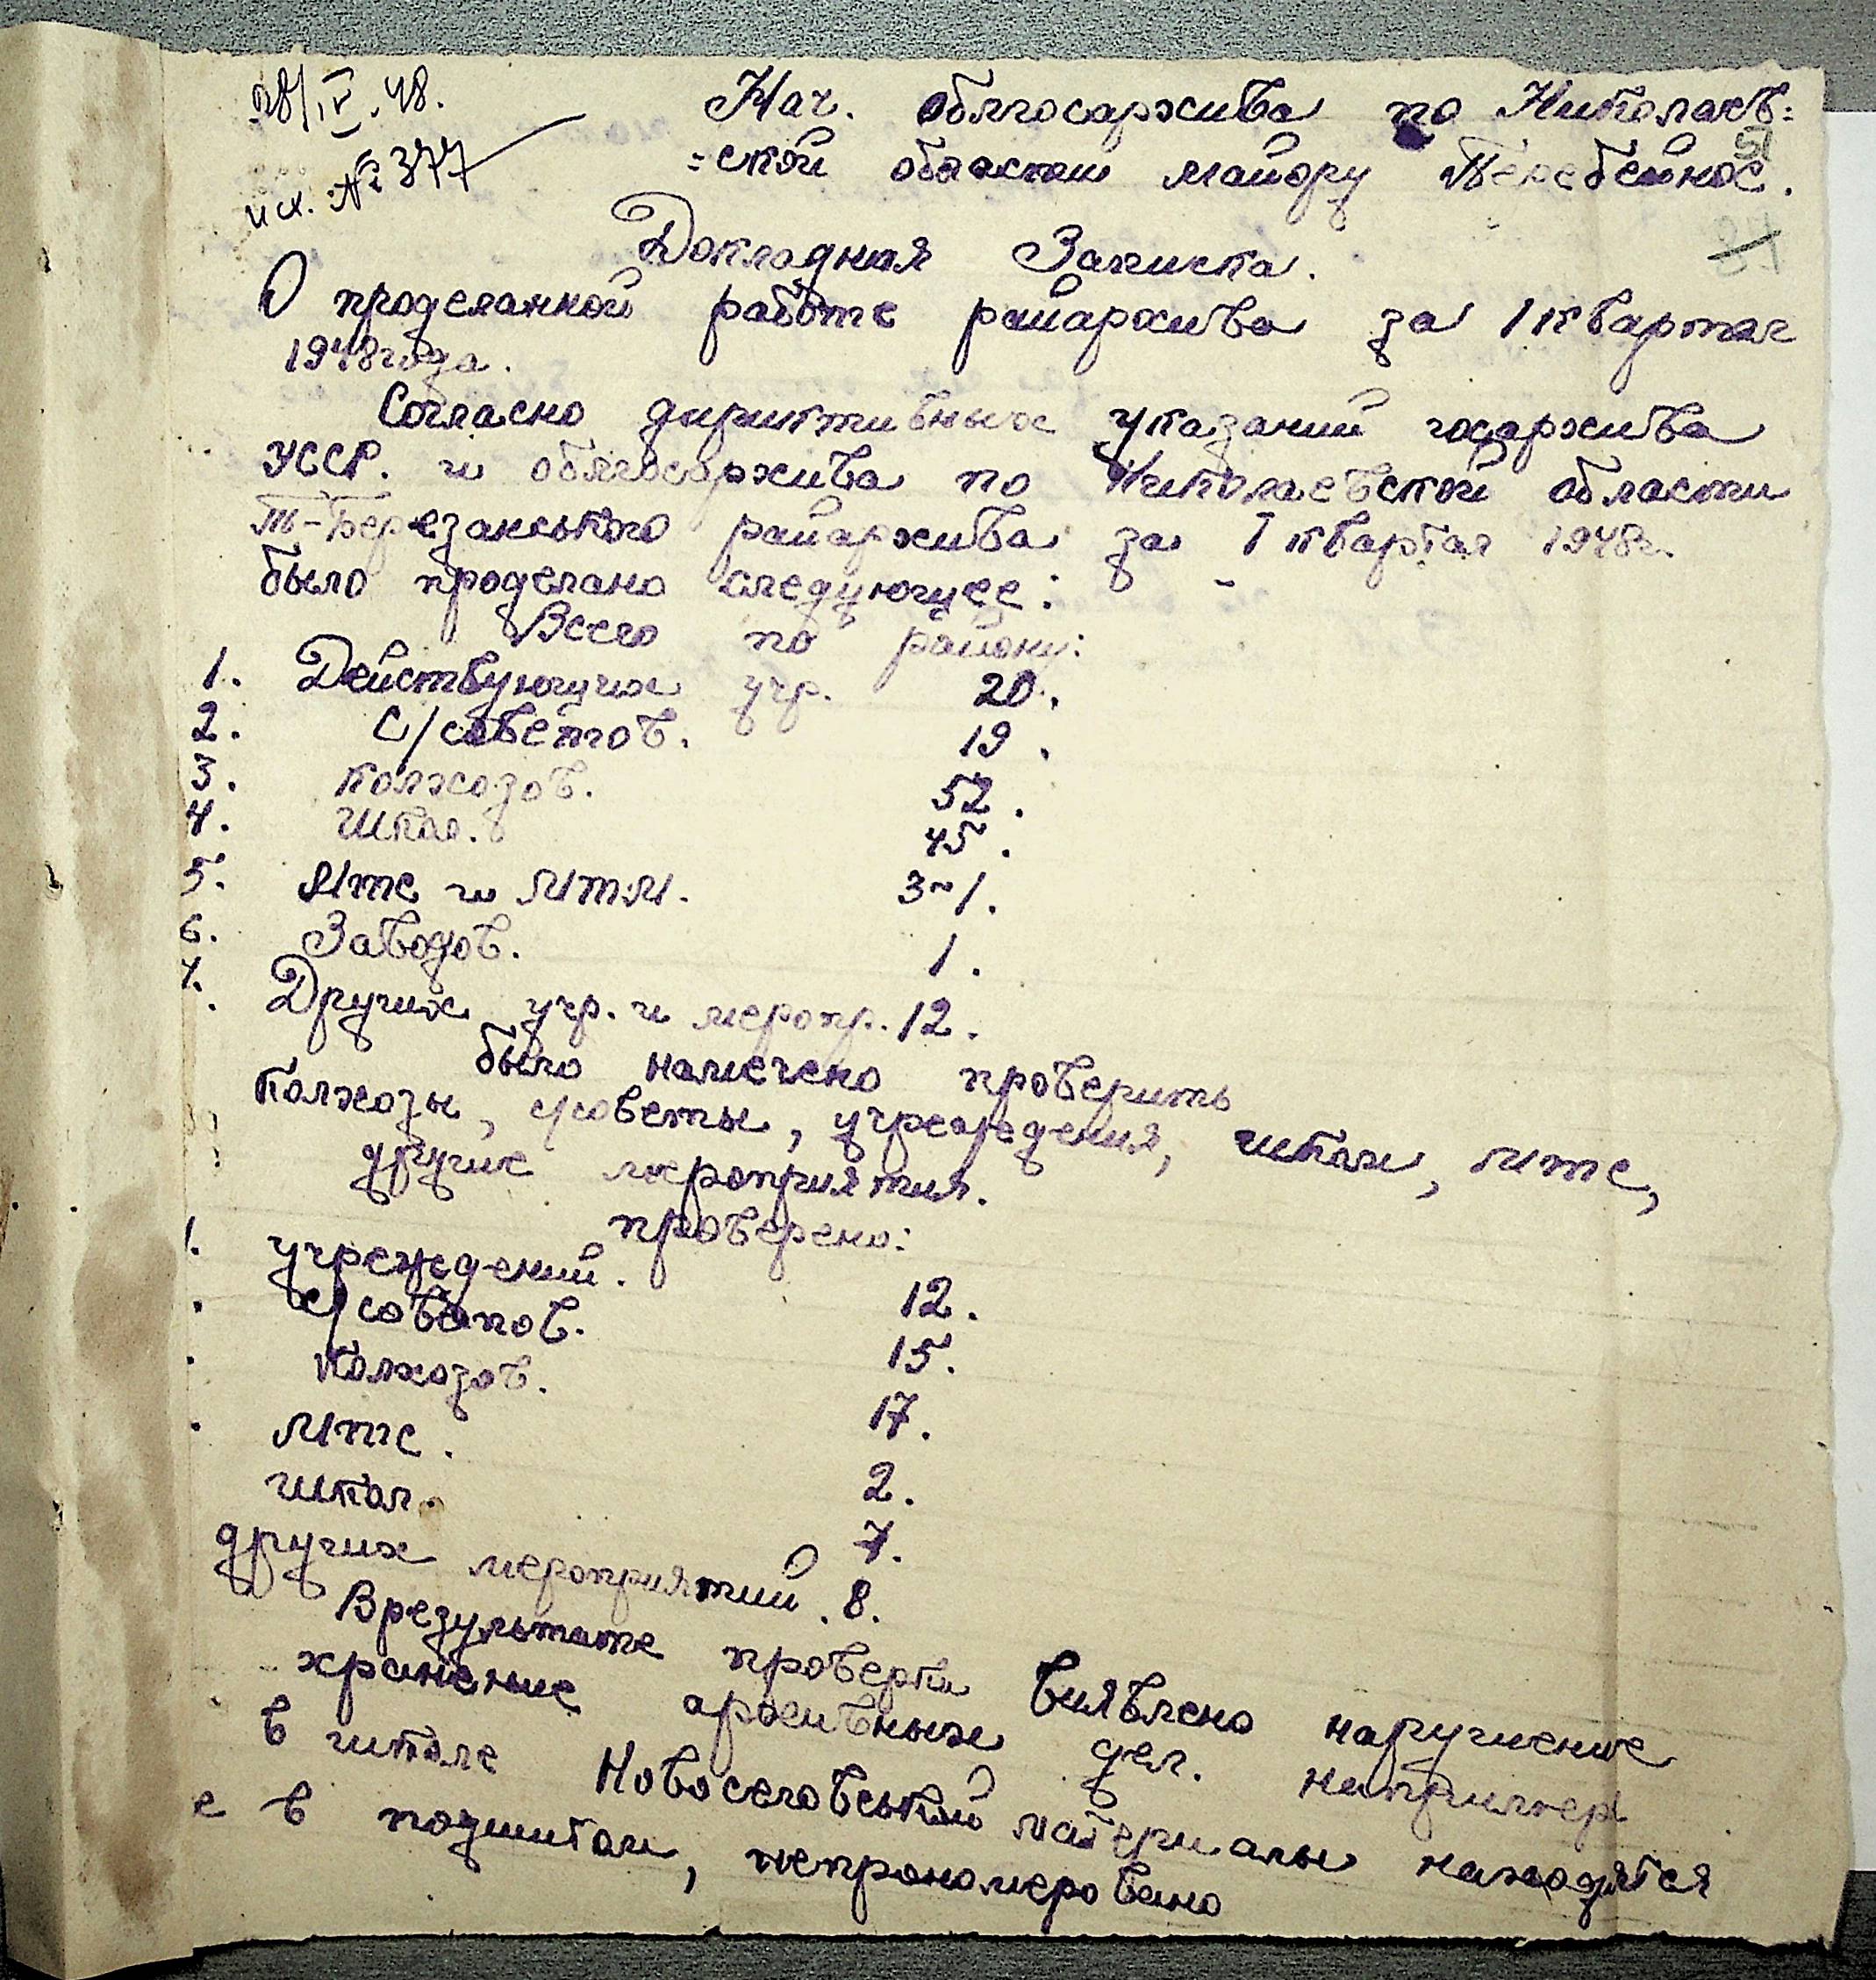 28/IV.48.
исх. № 377
Нач. облгосархива по Николаев=
=ской области майору Перебейнос.
Докладная Записка.
О проделанной работе райархива за 1 квартал
1948 года.
Согласно дириктивных указаний госархива
УССР. и облгосархива по Николаевской области
Т-Березанського райархива за I квартал 1948г.
было проделано следующее:
Всего по району:
1. Действующих учр. 20.
2. С/советов. 19.
3. Колхозов. 52.
4. Школ. 45.
5. Мтс и МТМ. 3~1.
6. Заводов. 1.
7. Других учр. и меропр. 12.
было намечено проверить
Колхозы, с/советы, учреждения, школы, мтс,
другие мероприятия.
проверено:
1. учреждений. 12.
с/советов. 15.
Колхозов. 17.
Мтс. 2.
школ. 7.
других мероприятий. 8.
В результате проверки виявлено нарушение
хранение архивных дел. например
в школе Новоселовський материалы находятся
е в подшитом, непрономеровано